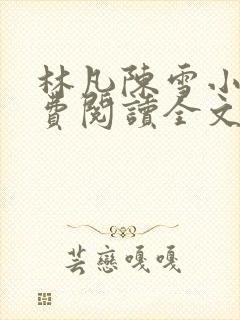 林凡陳雪小
費閱讀全文
芸戀嘎嘎